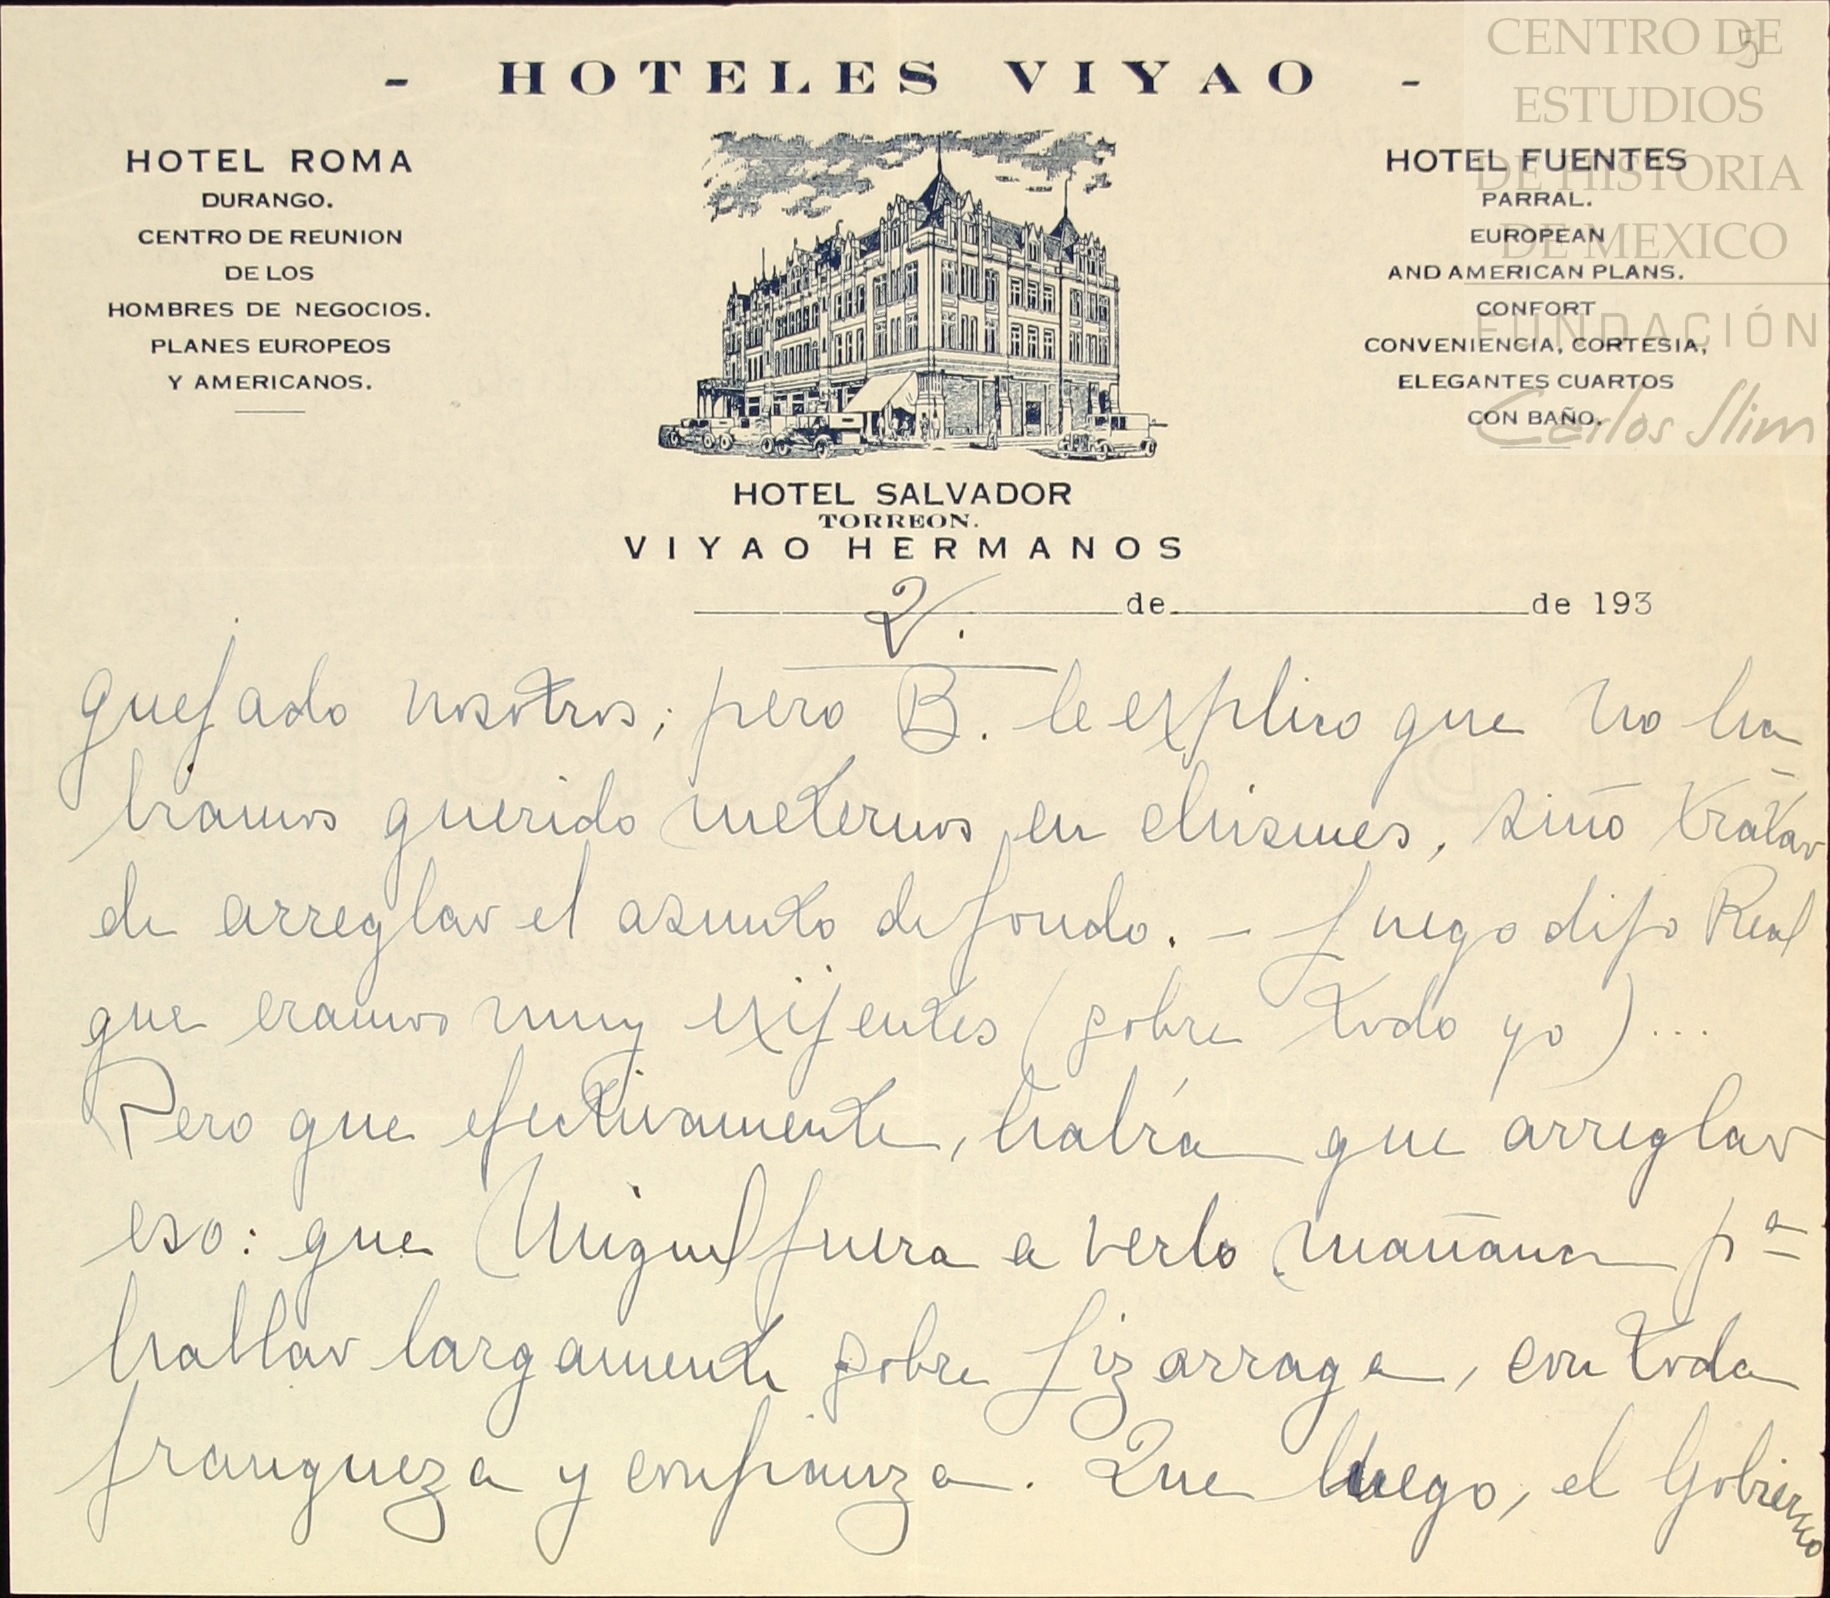 5
- HOTELES VIYAO -
HOTEL ROMA
DURANGO.
CENTRO DE REUNION
DE LOS
HOMBRES DE NEGOCIOS.
PLANES EUROPEOS
Y AMERICANOS.
HOTEL FUENTES
PARRAL.
EUROPEAN
AND AMERICAN PLANS.
CONFORT
CONVENIENCIA, CORTESIA,
ELEGANTES CUARTOS
CON BAÑO.
CENTRO DE
ESTUDIOS
DE HISTORIA
DE MEXICO
FUNDACIÓN
Carlos Slim
HOTEL SALVADOR
TORREON.
VIYAO HERMANOS
2. de de 193
quejado nosotros; pero B. le explico que no ha
bramos querido meternos en chismes, sino tratar
de arreglar el asunto de fondo. - Luego dijo Real
que eramos muy exijentes (sobre todo yo)...
Pero que efectivamente, habría que arreglar
eso: que Miguel fuera a verlo mañana pª
hablar largamente sobre Lizarraga, con toda
franqueza y confianza. Que luego, el Gobierno